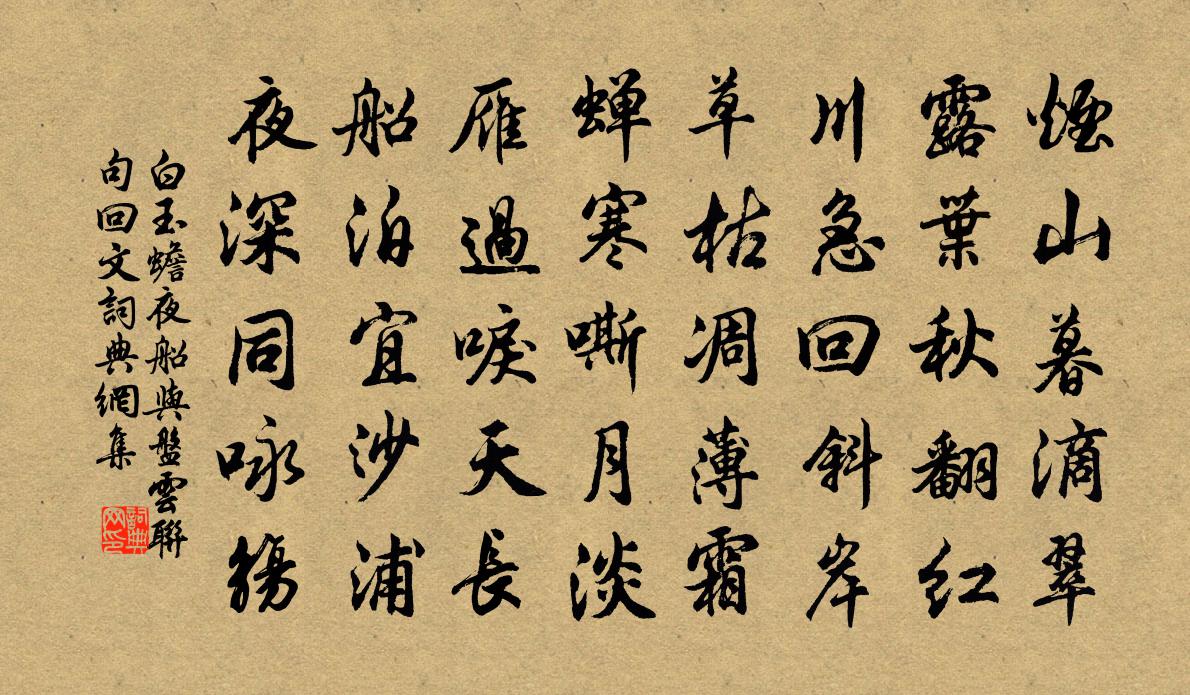 煙山暮滴翠
露葉秋翻红
川急回斜岸
草枯凋薄霜
蝉寒嘶月淡
雁過唳天長
船泊宜沙浦
夜深同咏觴
白玉蟾夜船與盤雲聯
句回文詞典網集
詞典网印